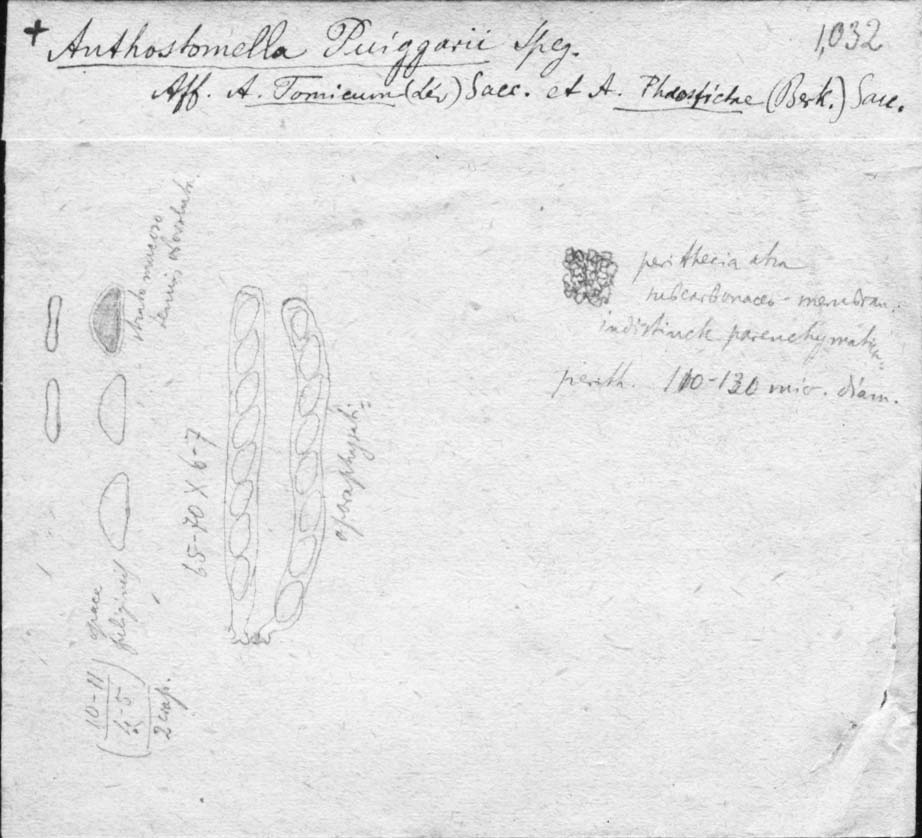 + Anthostomella Puiggarii Speg.
1,032
Aff. A. Tomicum (Lév) Sacc. et A. (Berk.) Sacc.
strato mucoso
tenuis
perithecia atra
subcarbonaceo-membran.
indistincte parenchymatic
perith. 110-130 mic. diam.
65-70 X 6-7
aparaphysati
opace
fuliginei
10-11
4-5
2 crass.